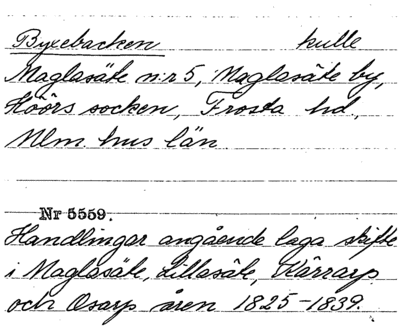 Byxebacken kulle
Maglasäte n:r 5, Maglasäte by,
Höörs socken, Frosta hd,
Mlm. hus län
Nr 5559.
Handlingar angående laga skifte
i Maglasäte, Lillasäte, Kärrarp
och Osarp åren 1825-1839.